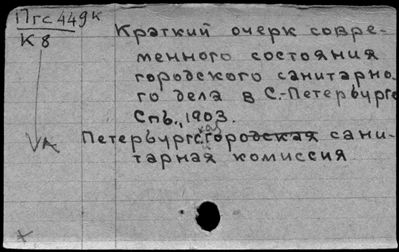 Пгс 449к
К 8
Краткий очерк совре-
менного состояния
городского санитарно-
го дела в С.-Петербурге
Спб., 1903.
Петербург. городская сани-
тарная комиссия